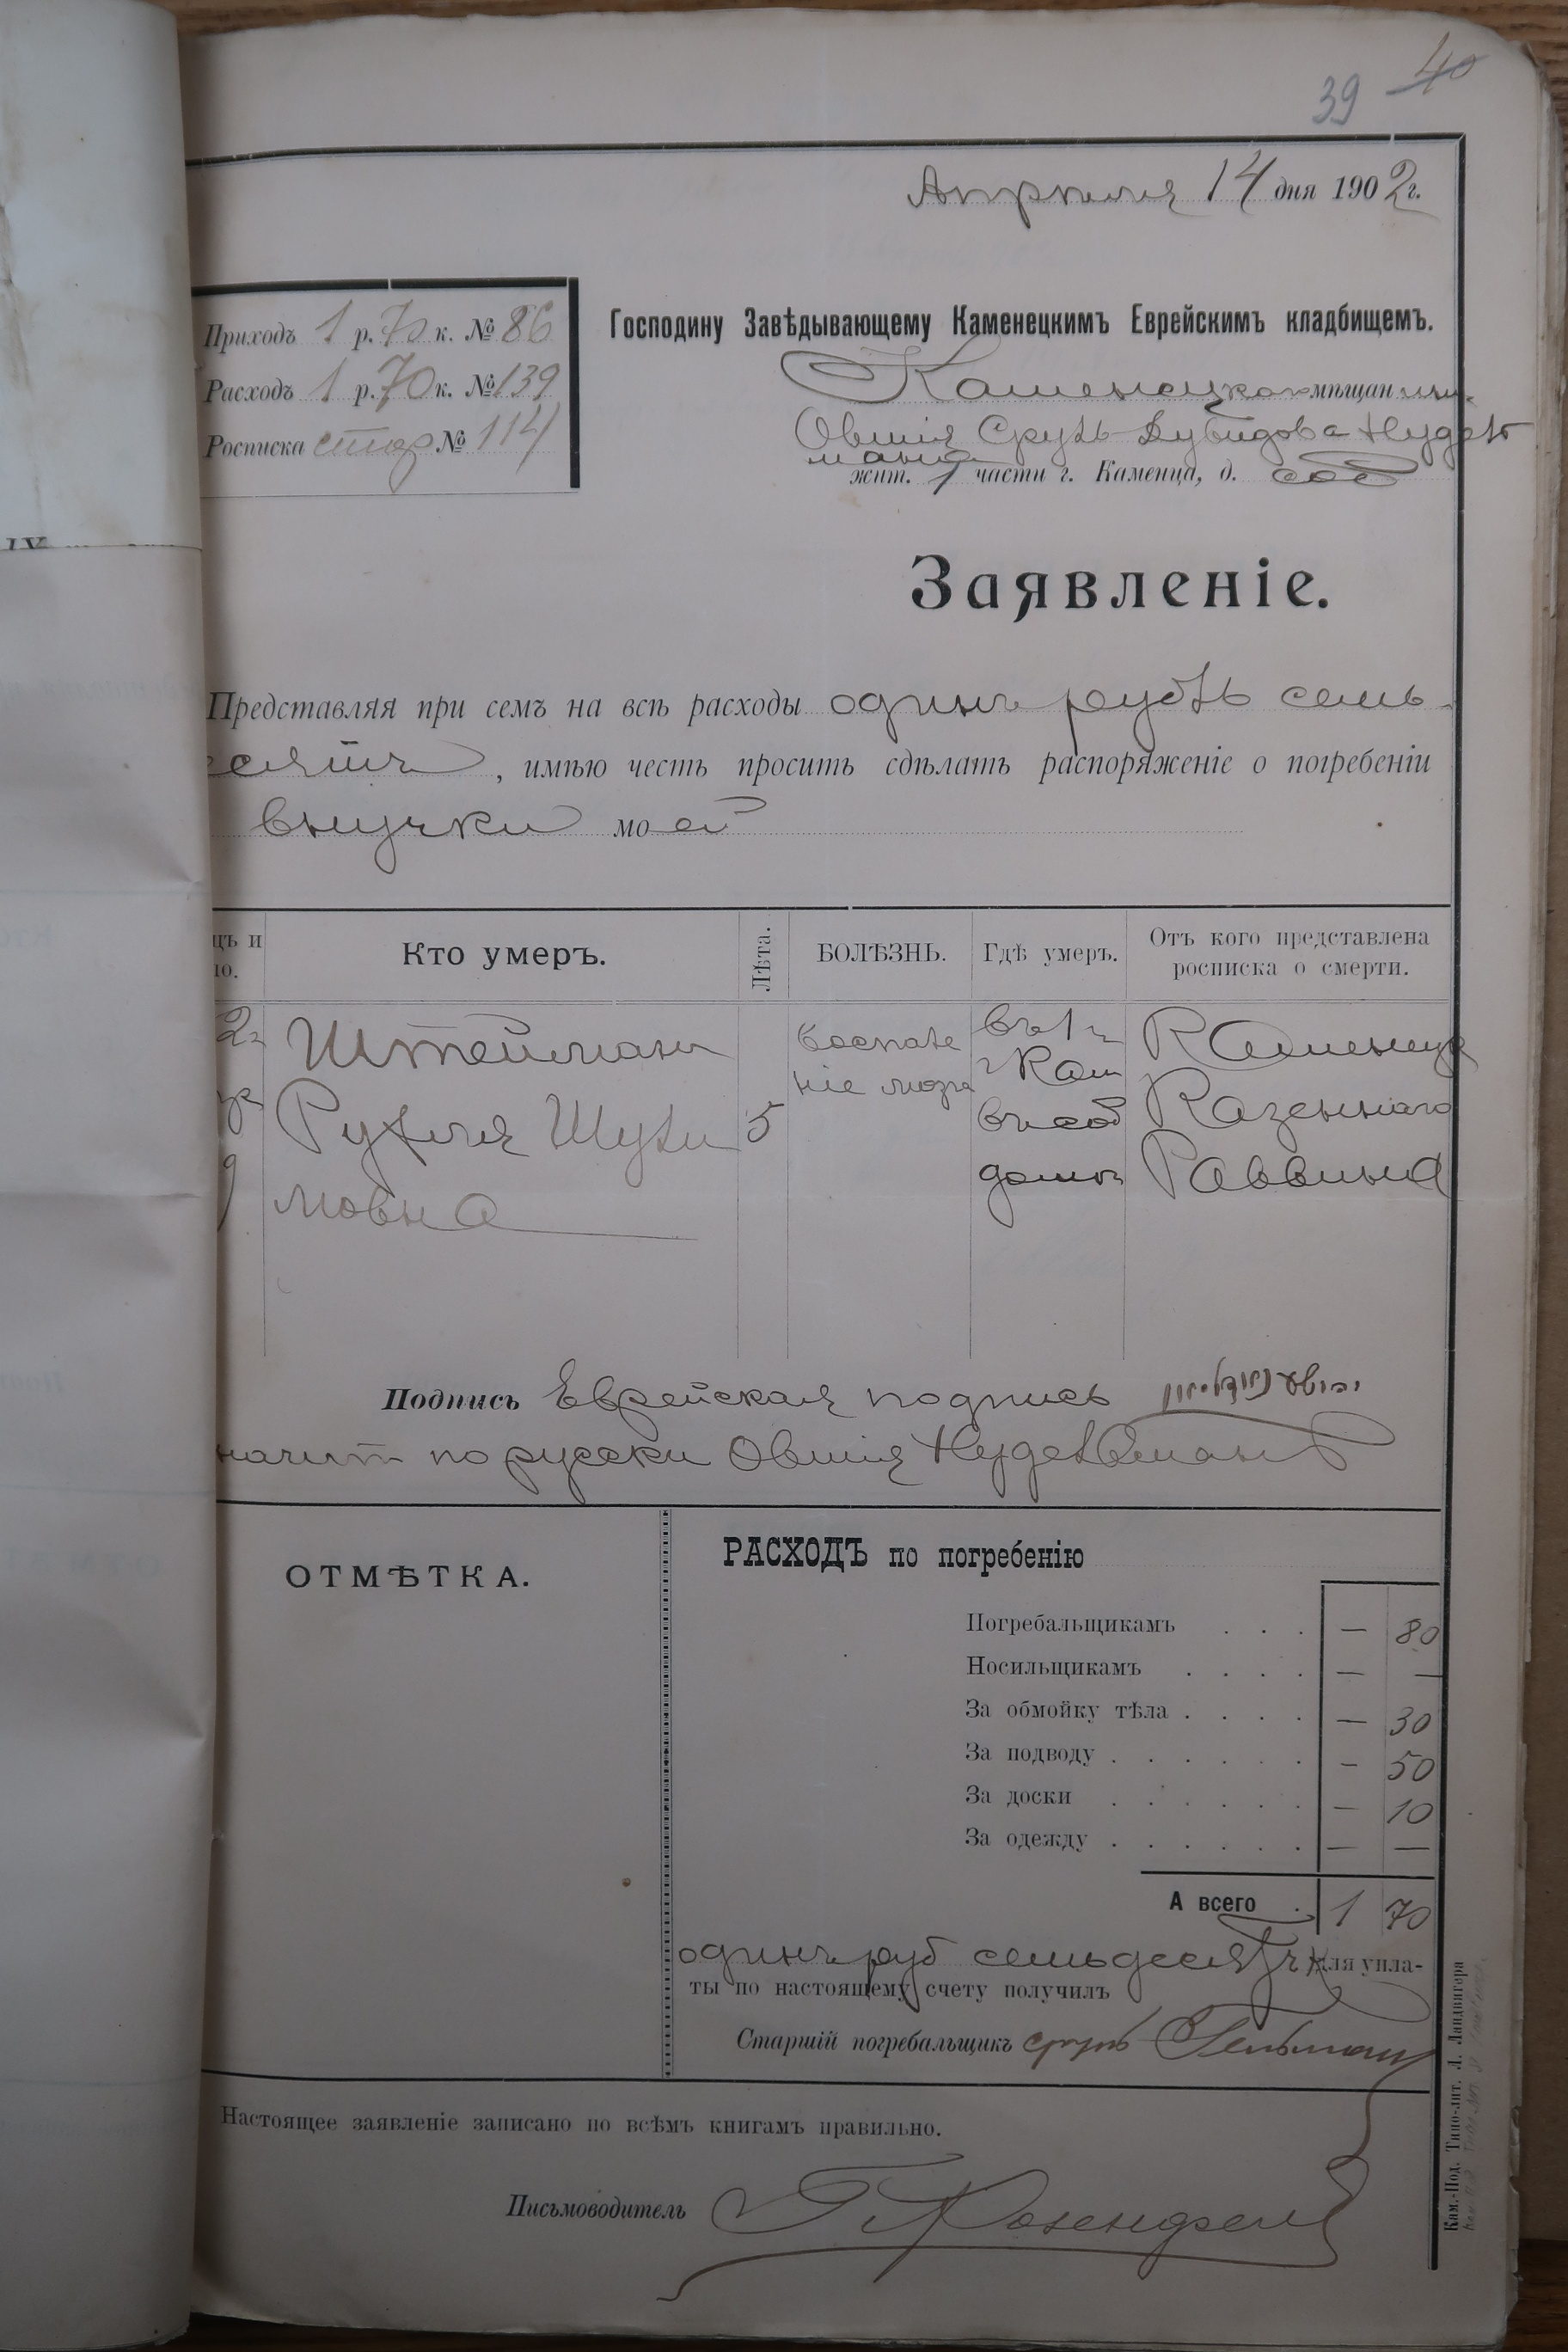 39 40
Апрѣля 14 дня 1902 г.
Приходъ 1 р. 70 к. № 86
Расходъ 1 р. 70 к. № 139
Росписка стар № 114
Господину Завѣдывающему Каменецкимъ Еврейскимъ кладбищемъ.
Каменецкого мѣщанина
Овшія Сруль Дувидова Нудель
мана
жит. 1 части г. Каменца, д. соб
Заявленіе.
Представляя при семъ на всѣ расходы одинъ рубль семь
есятъ, имѣю честь просить сдѣлать распоряженіе о погребеніи
внучки моей
цъ и
ло.
Кто умеръ.
Лѣта.
БОЛѢЗНЬ.
Гдѣ умеръ.
Отъ кого представлена
росписка о смерти.
Штейман
Рухля Шули
мовна
5
воспале
ніе мозга
въ 1 ч
г Кам
въ соб
домѣ
Каменец
Казеннаго
Раввина
Подпись Еврейская подпись יהושע נודילמאן
начит по русски Овшія Нудельманъ
ОТМѢТКА.
РАСХОДЪ по погребенію
Погребальщикамъ . . . — 80
Носильщикамъ . . . . — —
За обмойку тѣла . . . . — 30
За подводу . . . . . . — 50
За доски . . . . . . — 10
За одежду . . . . . . — —
А всего . 1 70
одинъ руб семьдесятъ к для упла-
ты по настоящему счету получилъ
Старшій погребальщикъ сруль Гельман
Настоящее заявленіе записано по всѣмъ книгамъ правильно.
Письмоводитель Г Розенфель
Кам.-Под. Типо-лит. Л. Ландвигера